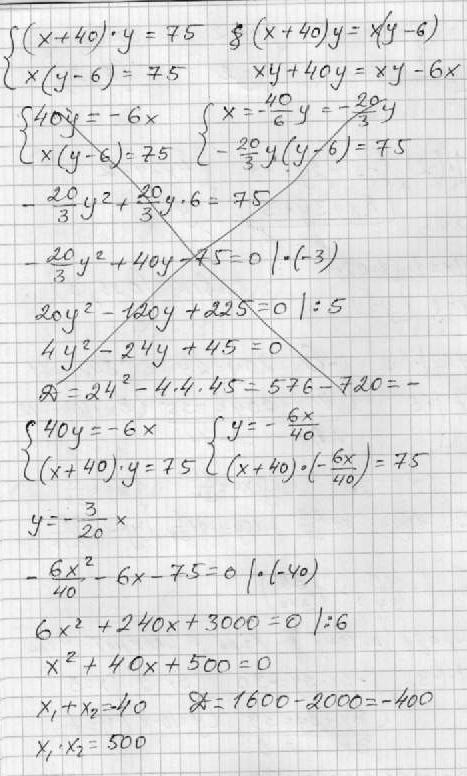 { (x+40)·y = 75   (x+40)y = x(y-6)
{ x(y-6) = 75   xy+40y = xy-6x
{ 40y = -6x   { x = -40/6 y = -20/3 y
{ x(y-6) = 75   { -20/3 y(y-6) = 75
-20/3 y² + 20/3 y·6 = 75
-20/3 y² + 40y - 75 = 0 |·(-3)
20y² - 120y + 225 = 0 |:5
4y² - 24y + 45 = 0
D = 24² - 4·4·45 = 576 - 720 = -
{ 40y = -6x   { y = - 6x/40
{ (x+40)·y = 75   { (x+40)·(-6x/40) = 75
y = -3/20 x
-6x²/40 - 6x - 75 = 0 |·(-40)
6x² + 240x + 3000 = 0 |:6
x² + 40x + 500 = 0
x₁ + x₂ = -40   D = 1600 - 2000 = -400
x₁·x₂ = 500